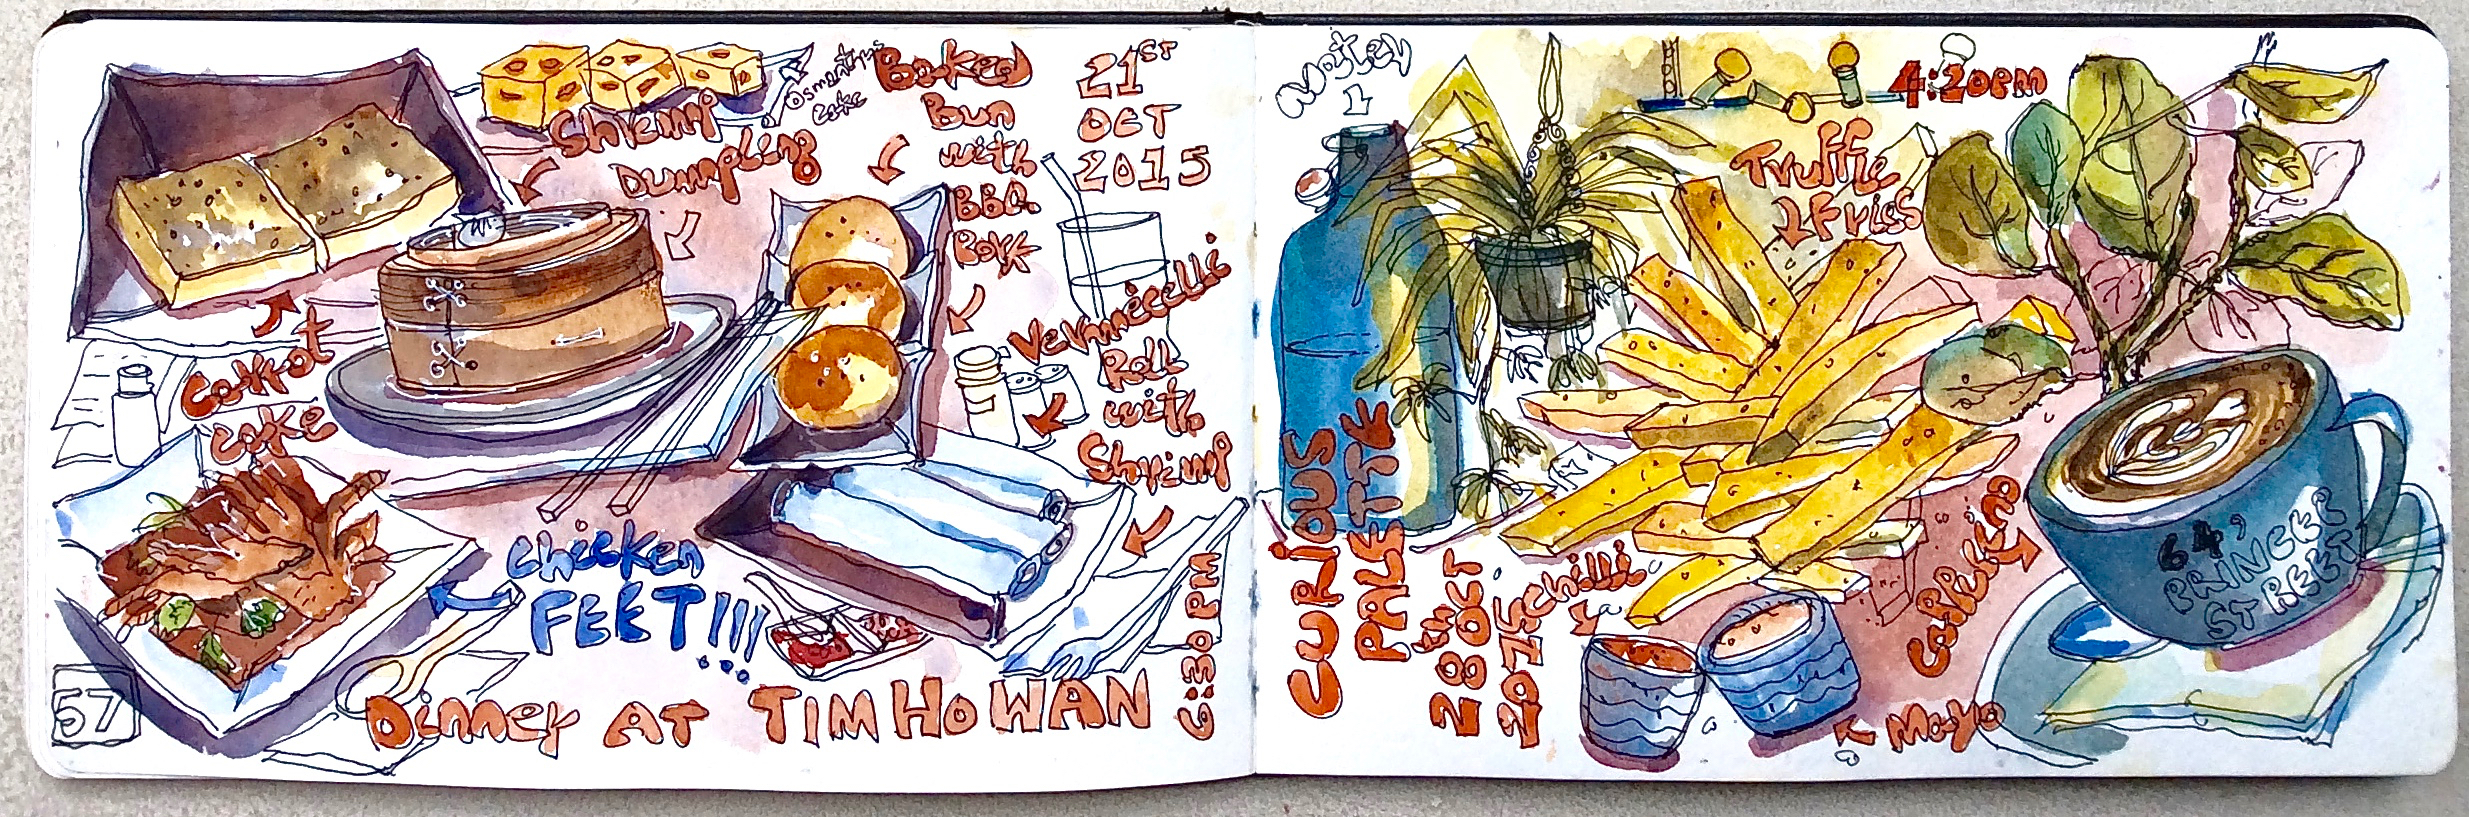 Osmanthus
Cake
Shrimp
Dumpling
Baked
Bun
with
BBQ
Pork
21ST
OCT
2015
Carrot
cake
Vermicelli
Roll
with
Shrimp
Chicken
FEET!!!
57
Dinner AT TIM HO WAN
6:30 PM
Water
4:20pm
Truffle
Fries
CURIOUS
PALETTE
28th OCT
2015
chilli
Cappucino
64,
PRINCEP
STREET
Mayo